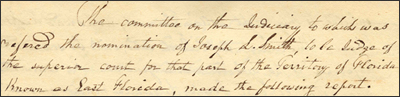 The committee on the Judiciary to which was
refered the nomination of Joseph L. Smith, to be Judge of
the superior court for that part of the Territory of Florida
Known as East Florida, made the following report.